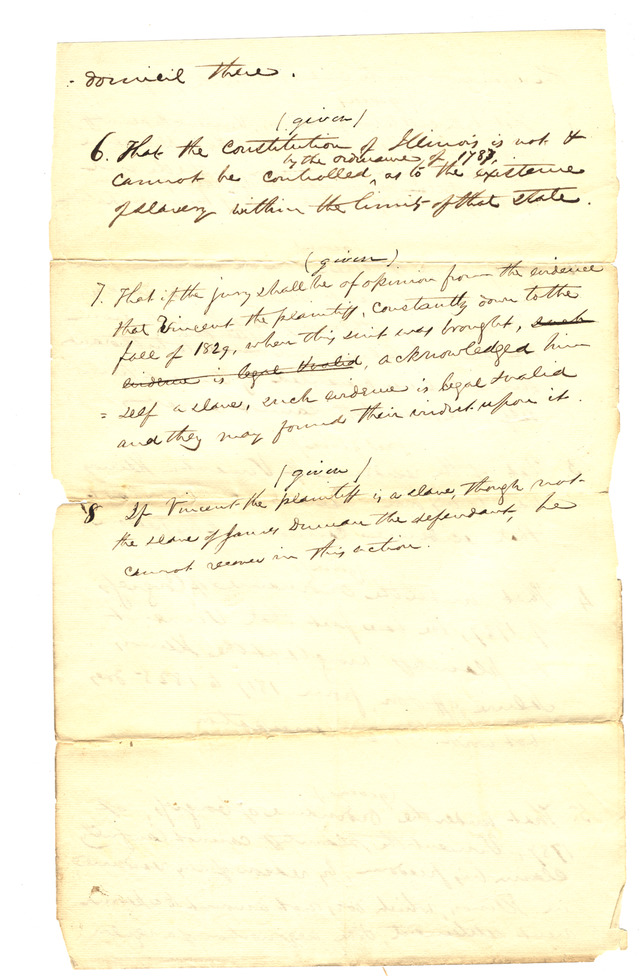 - domicil there.
(given)
6. That the constitution of Illinois is not &
by the ordinance of 1787,
cannot be controlled ^ as to the existence
of slavery within the limits of that state.
(given)
7. That if the jury shall be of opinion from the evidence
that Vincent the plaintiff, constantly down to the
fall of 1829, when this suit was brought, such
evidence is legal & valid, acknowledged him
= self a slave, such evidence is legal & valid
and they may found their verdict upon it.
(given)
8 If Vincent the plaintiff is a slave, though not
the slave of James Duncan the defendant, he
cannot recover in this action.